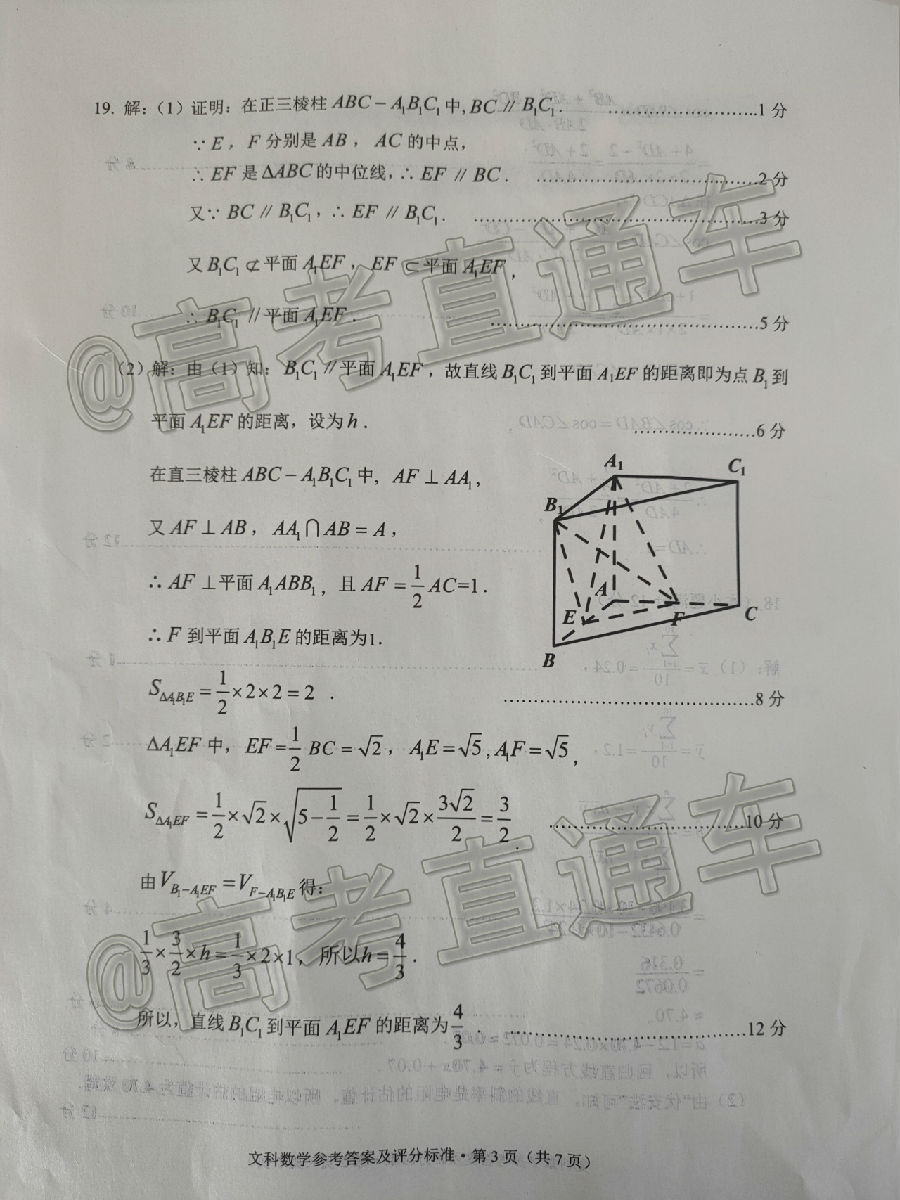 19. 解：（1）证明：在正三棱柱 ABC－A₁B₁C₁ 中, BC // B₁C₁. ……………………1 分
∵ E，F 分别是 AB，AC 的中点，
∴ EF 是 ΔABC 的中位线，∴ EF // BC. ……………………2 分
又∵ BC // B₁C₁，∴ EF // B₁C₁. ……………………3 分
又 B₁C₁ ⊄ 平面 A₁EF，EF ⊂ 平面 A₁EF，
∴ B₁C₁ // 平面 A₁EF. ……………………5 分
（2）解：由（1）知：B₁C₁ // 平面 A₁EF，故直线 B₁C₁ 到平面 A₁EF 的距离即为点 B₁ 到
平面 A₁EF 的距离，设为 h. ……………………6 分
在直三棱柱 ABC－A₁B₁C₁ 中，AF ⊥ AA₁，
又 AF ⊥ AB，AA₁ ⋂ AB = A，
∴ AF ⊥ 平面 A₁ABB₁，且 AF = 1/2 AC=1.
∴ F 到平面 A₁B₁E 的距离为1.
S_{ΔA₁B₁E} = 1/2 × 2 × 2 = 2. ……………………8 分
A₁
C₁
B₁
A
E
F
C
B
ΔA₁EF 中，EF = 1/2 BC = √2，A₁E = √5, A₁F = √5，
S_{ΔA₁EF} = 1/2 × √2 × √(5 − 1/2) = 1/2 × √2 × 3√2/2 = 3/2. ……………………10 分
由 V_{B₁−A₁EF} = V_{F−A₁B₁E} 得：
1/3 × 3/2 × h = 1/3 × 2 × 1，所以 h = 4/3.
所以，直线 B₁C₁ 到平面 A₁EF 的距离为 4/3. ……………………12 分
文科数学参考答案及评分标准·第 3 页（共 7 页）
@高考直通车
@高考直通车